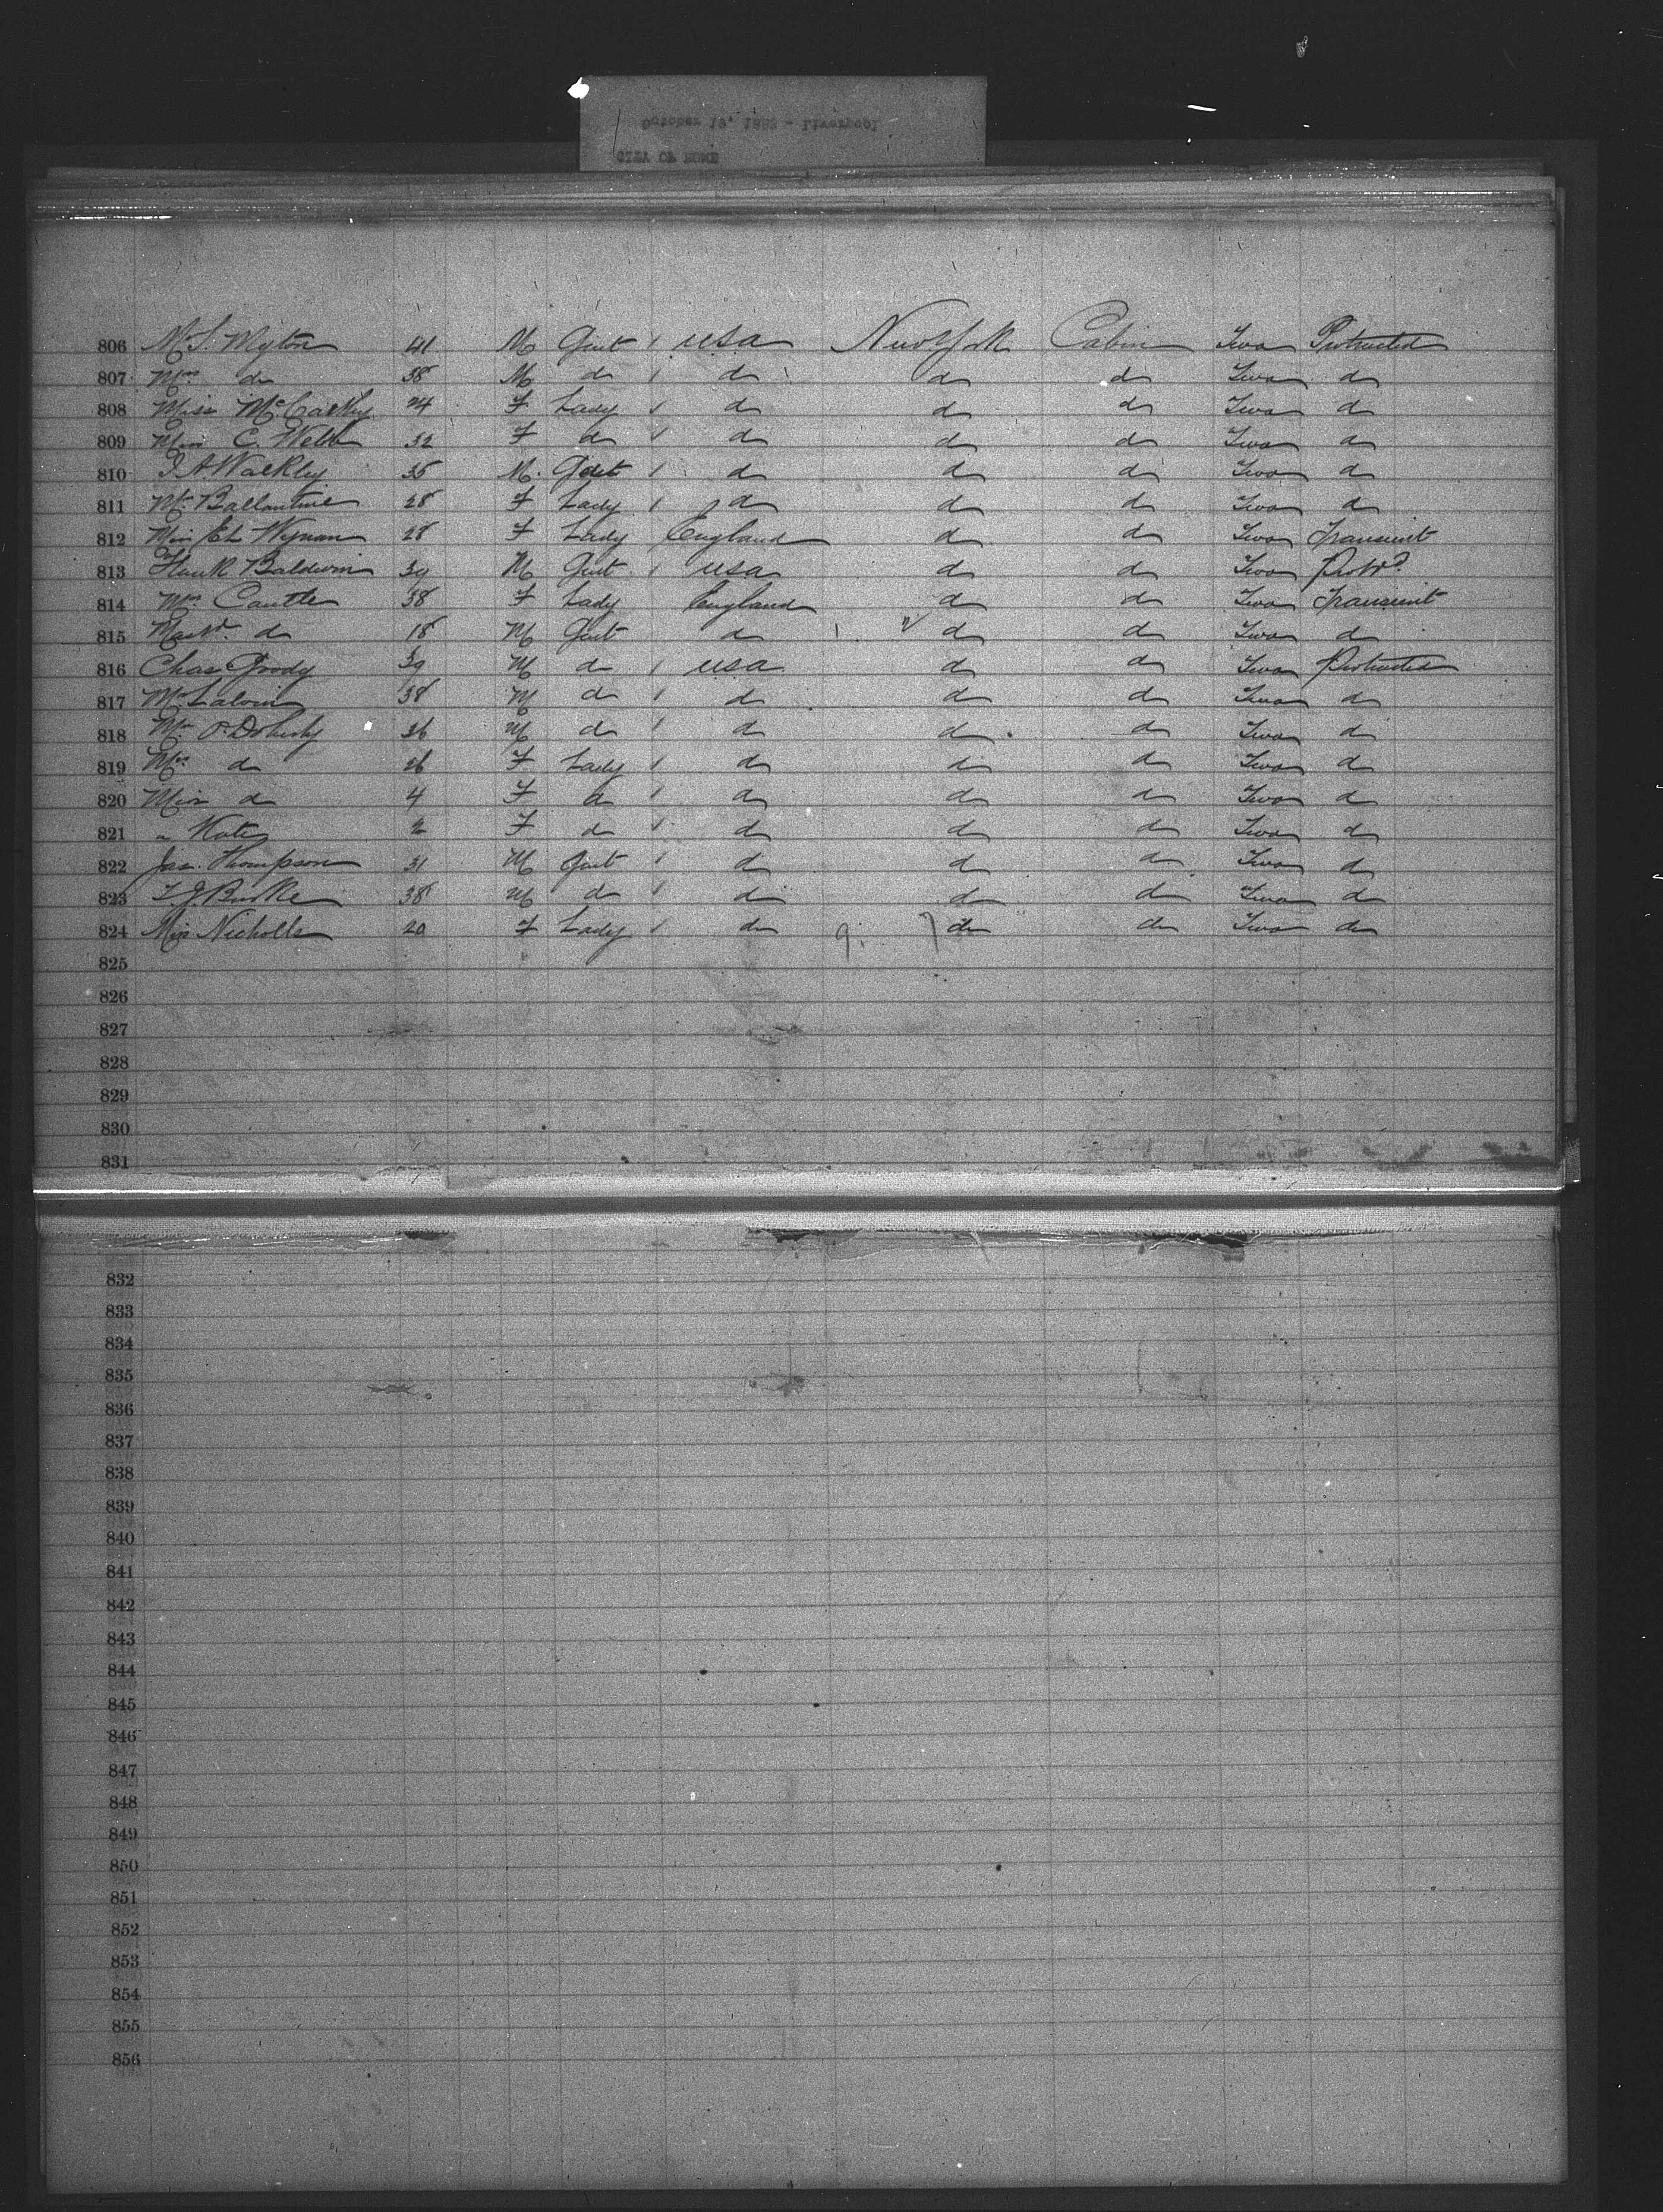 October 19, 188 - Liverpool
CITY OF ROME
806 M. S. Myton 41 M Gent / USA New York Cabin Two Protracted
807 Mrs do 38 M do / do do do Two do
808 Miss McCarthy 24 F Lady / do do do Two do
809 Miss C. Welch 32 F do / do do do Two do
810 Walkley 35 M. Gent / do do do Two do
811 Ballantine 28 F Lady / do do do Two do
812 Miss Wyman 28 F Lady England do do Two Transient
813 Baldwin 39 M Gent / USA do do Two Protd
814 Mrs Cantle 38 F Lady England do do Two Transient
815 do 18 M Gent do do do Two do
816 Chas Goody 39 M do / USA do do Two Protracted
817 Mr 38 M do / do do do Two do
818 Mr O'Doherty 36 M do / do do do Two do
819 Mrs do 26 F Lady / do do do Two do
820 Miss do 4 F do / do do do Two do
821 " Kate 2 F do / do do do Two do
822 Jas. Thompson 31 M Gent / do do do Two do
823 T. J. Burke 38 M do / do do do Two do
824 Miss Nicholls 20 F Lady / do do do Two do
825
826
827
828
829
830
831
832
833
834
835
836
837
838
839
840
841
842
843
844
845
846
847
848
849
850
851
852
853
854
855
856